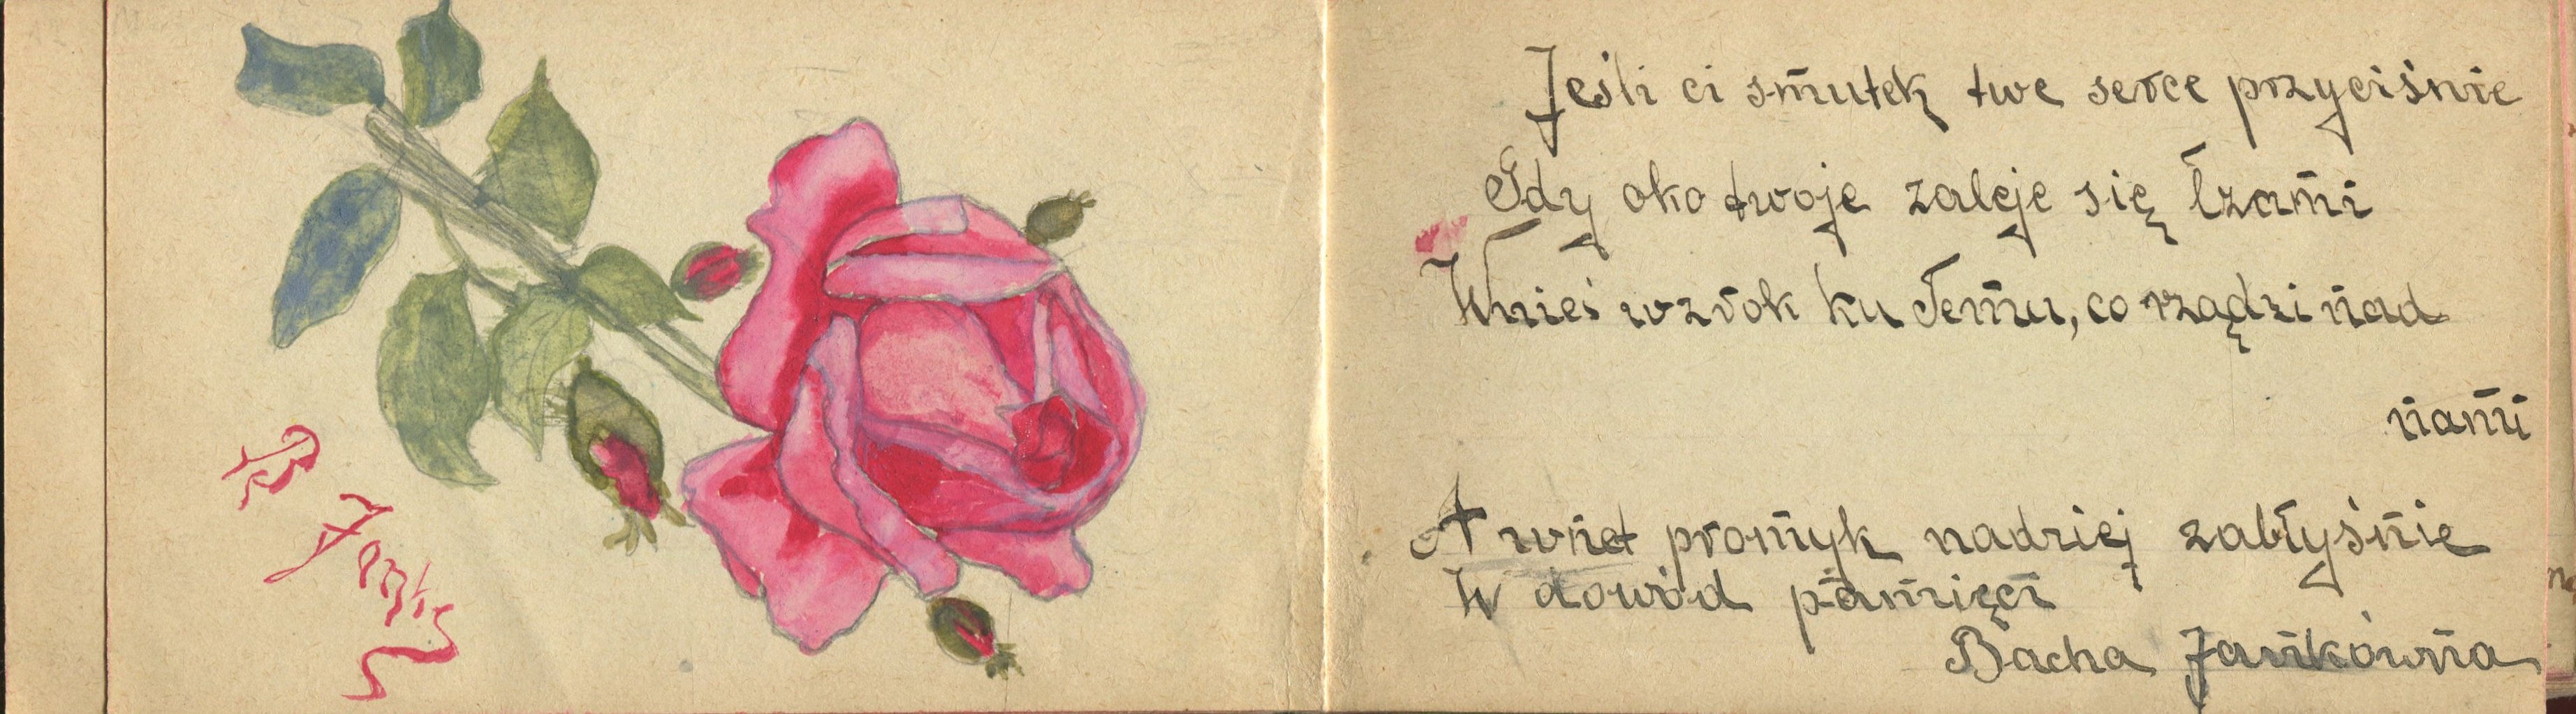 B Janks
Jeśli ci smutek twe serce przyciśnie
Gdy oko twoje zaleje się łzami
Wnieś wzrok ku Temu, co rządzi nad
nami
A wnet promyk nadziej zabłyśnie
W dowód pamięci
Bacha Jankówna